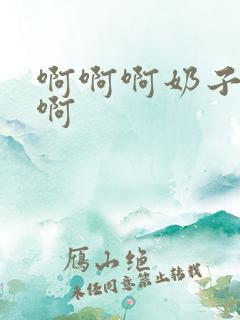 啊啊啊奶子
啊
鴈山绝
未经同意禁止转载